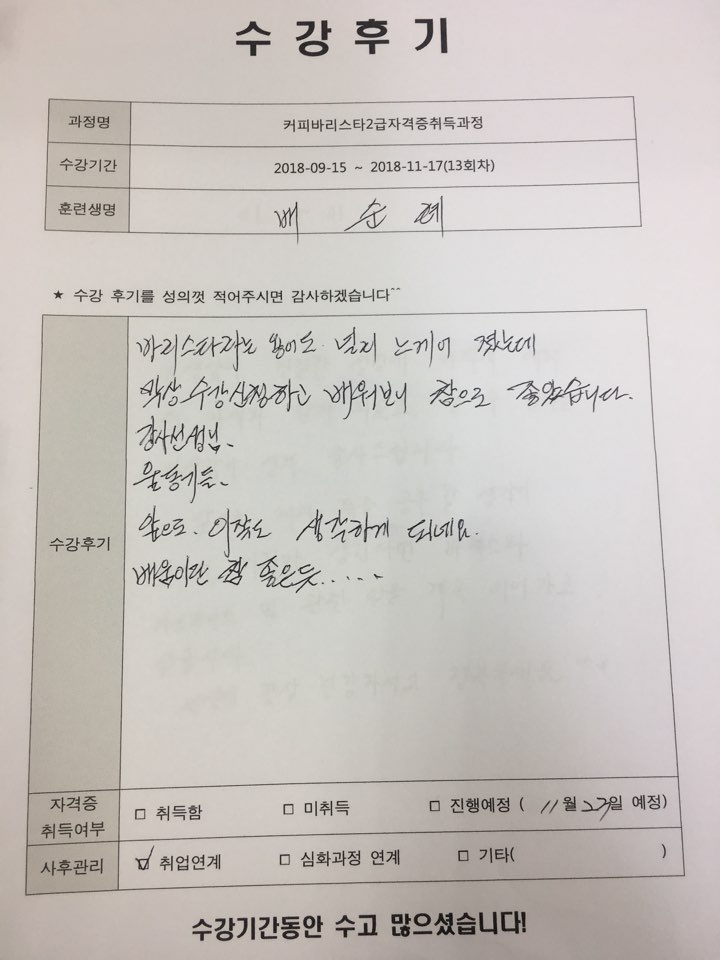 수 강 후 기
과정명 커피바리스타2급자격증취득과정
수강기간 2018-09-15 ~ 2018-11-17(13회차)
훈련생명 배 순 례
★ 수강 후기를 성의껏 적어주시면 감사하겠습니다^^
수강후기
바리스타라는 용어도 낯설게 느껴졌는데
막상 수강신청하고 배워보니 참으로 좋았습니다.
강사선생님.
울동기들.
앞으로. 생각하게 되네요.
배움이란 참 좋은듯.....
자격증 취득여부 □ 취득함 □ 미취득 □ 진행예정 ( 11월 23일 예정)
사후관리 ☑ 취업연계 □ 심화과정 연계 □ 기타( )
수강기간동안 수고 많으셨습니다!